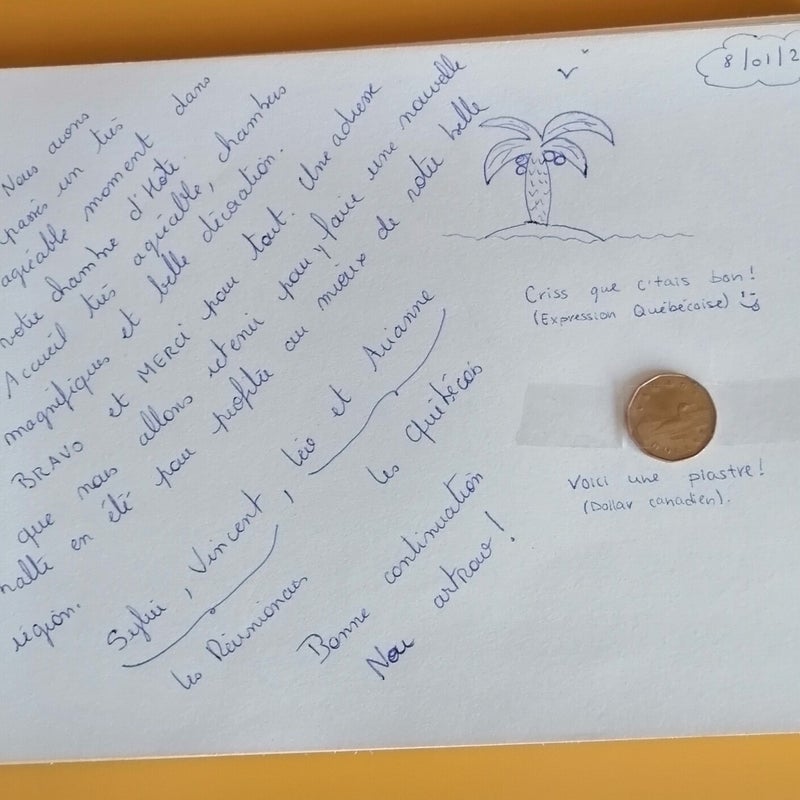 8/01/2
Nous avons
passés un très
agréable moment dans
votre chambre d'Hôte.
Accueil très agréable, chambres
magnifiques et belle décoration.
BRAVO et MERCI pour tout. Une adresse
que nous allons retenir pour y faire une nouvelle
halte en été pour profiter au mieux de votre belle
région.
Sylvie, Vincent, Léo et Arianne
les Réunionnais
les Québécois
Bonne continuation
Nou artrouv!
Criss que c'tais bon!
(Expression Québécoise)
Voici une piastre!
(Dollar canadien).